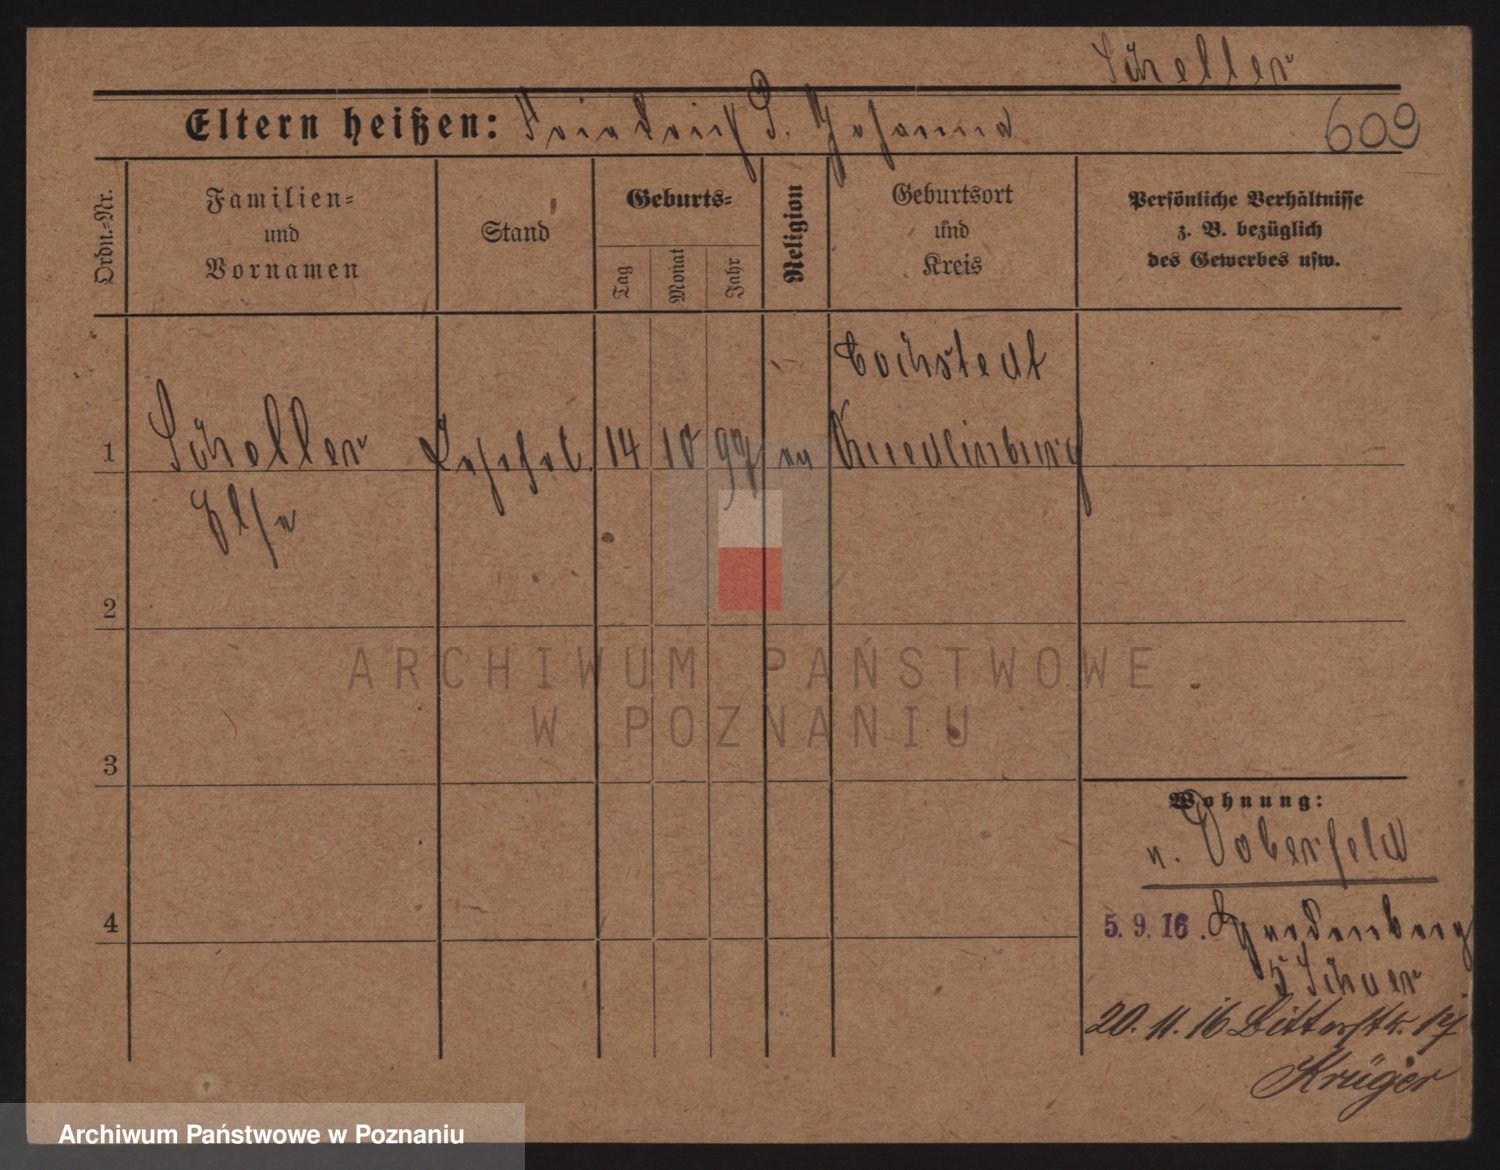 Scheller
Eltern heißen: Friedrich P. Johanna
609
Ordn.-Nr.
Familien-
und
Vornamen
Stand
Geburts-
Tag
Monat
Jahr
Religion
Geburtsort
und
Kreis
Persönliche Verhältnisse
z. B. bezüglich
des Gewerbes usw.
Cochstedt
1 Scheller 14 10 97 ev Quedlinburg
Else
2
ARCHIWUM PAŃSTWOWE
W POZNANIU
3
Wohnung:
v. Doberfeld
4
5. 9. 16. Hardenberg
5 Schuer
20. 11. 16 Ritterstr. 17
Krüger
Archiwum Państwowe w Poznaniu